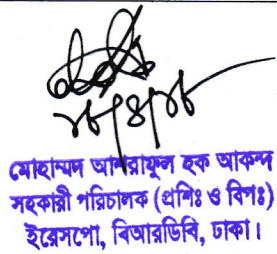 ২৮/৪/২৮
মোহাম্মদ আশরাফুল হক আকন্দ
সহকারী পরিচালক (প্রশিঃ ও বিপঃ)
ইরেসপো, বিআরডিবি, ঢাকা।